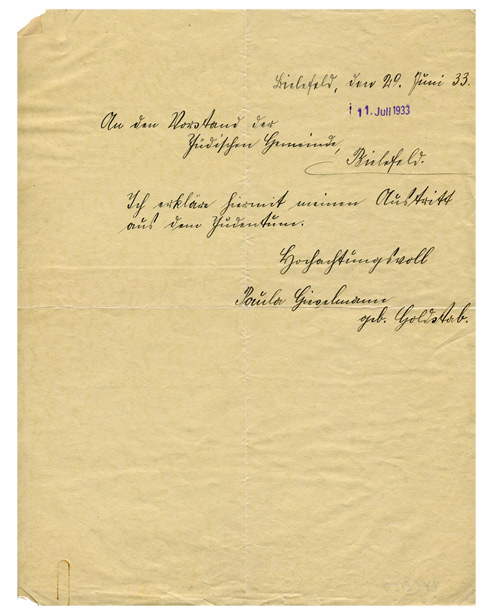 Bielefeld, den 29. Juni 33.
11. Juli 1933
An den Vorstand der
Jüdischen Gemeinde,
Bielefeld.
Ich erkläre hiermit meinen Austritt
aus dem Judentum.
Hochachtungsvoll
Paula Gieselmann
geb. Goldstab.